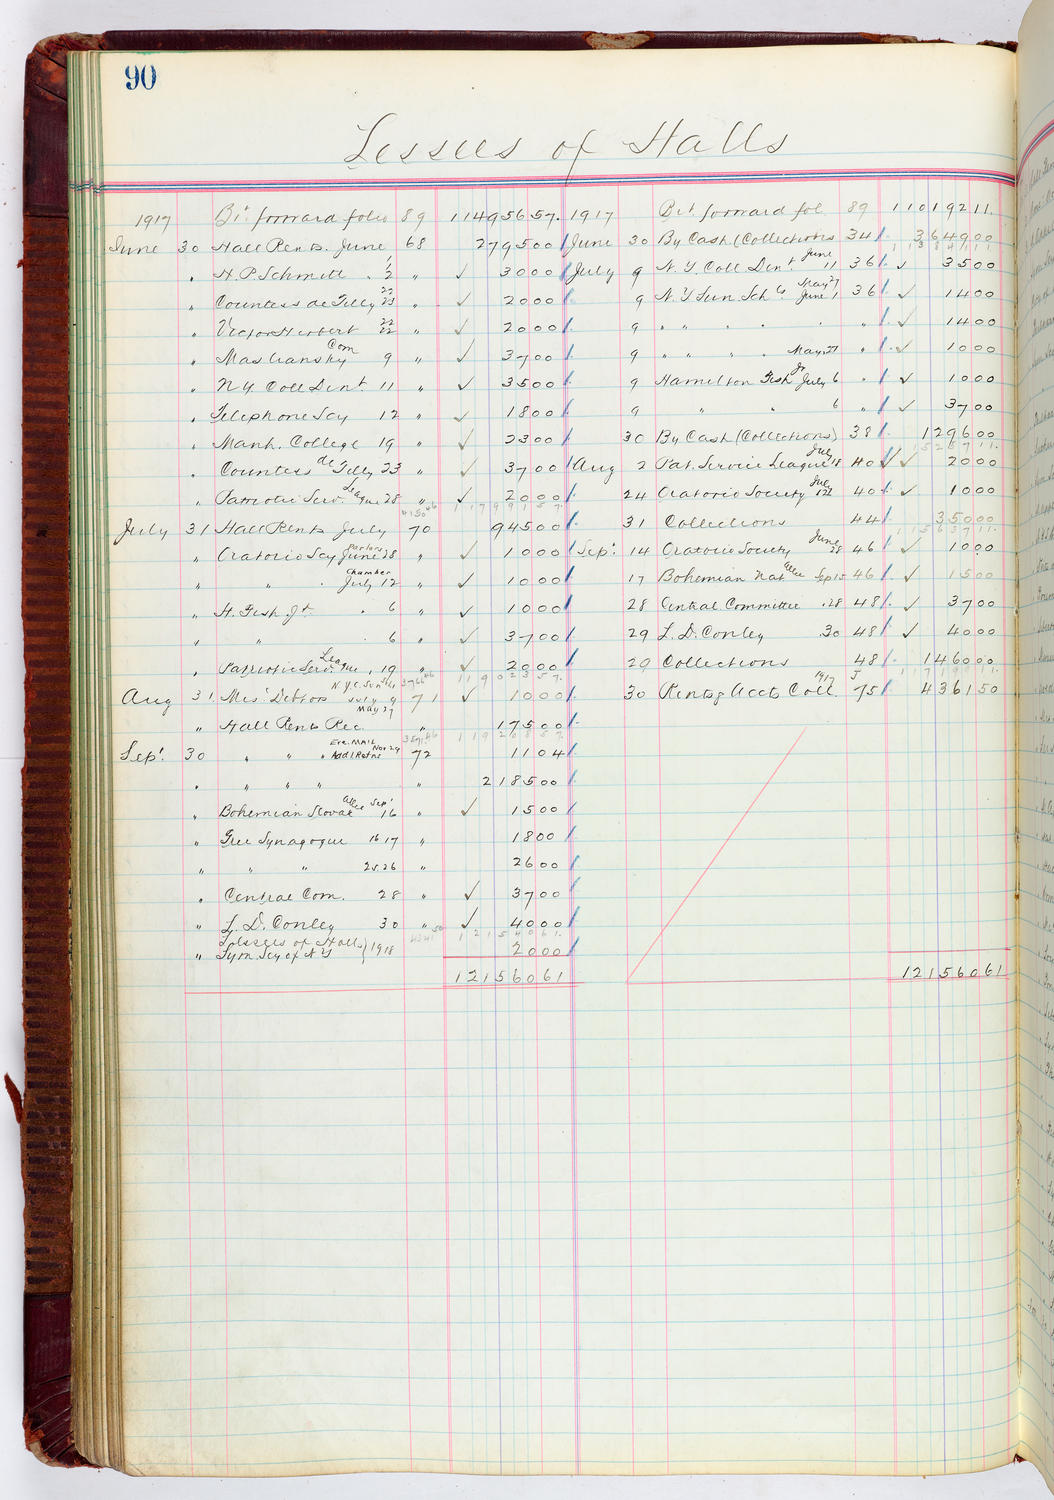 90
Lessees of Halls
1917 Bt. forward folio 89 11495657. 1917 Bt. forward fol 89 11019211.
June 30 Hall Rents June 68 279500 June 30 By Cash (Collections 34 364900
" H. P. Schmitt 1/2 " ✓ 3000 July 9 N. Y. Coll Dent June 11 36 ✓ 3500
" Countess de Tilly 22/23 " ✓ 2000 9 N. Y Sun. Sch May 27 June 1 36 ✓ 1400
" Victor Herbert 22/22 " ✓ 2000 9 " " " " " ✓ 1400
" Mas Com 9 " ✓ 3700 9 " " " " May 27 " ✓ 1000
" N Y Coll Dent 11 " ✓ 3500 9 Hamilton Fish Jr July 6 " ✓ 1000
" Telephone Socy 12 " ✓ 1800 9 " " 6 " ✓ 3700
" Manh. College 19 " ✓ 2300 30 By Cash (Collections) 38 129600
" Countess de Tilly 23 " ✓ 3700 Aug 2 Pat. Service League July 18 40 ✓ 2000
" Patriotic Serv. League 28 " ✓ 2000 24 Oratorio Society 40 ✓ 1000
July 31 Hall Rents July 70 94500 31 Collections 44 35000
" Oratorio Socy Parlors June 28 " ✓ 1000 Sept 14 Oratorio Society June 28 46 ✓ 1000
" " " Chamber July 12 " ✓ 1000 17 Bohemian Nat Allce Sep 15 46 ✓ 1500
" H. Fish Jr. " 6 " ✓ 1000 28 Central Committee " 28 48 ✓ 3700
" " " 6 " ✓ 3700 29 L. D. Conley 30 48 ✓ 4000
" Patriotic Serv. League " 19 " ✓ 2000 29 Collections 48 146000
Aug 31 Mis. Debtors N.Y.C. Sun Sch July 9 May 27 71 ✓ 1000 30 Rents & Accts Coll. 1917 J 75 436150
" Hall Rents Rec " 17500
Sept 30 " " " Eve. Mail Addl Retns Nov 29 72 1104
" " " " " " 218500
" Bohemian Slovak Allce Sept 16 ✓ 1500
" Free Synagogue 16 17 " 1800
" " " 25.26 " 2600
" Central Com. 28 " ✓ 3700
" L. D. Conley 30 " ✓ 4000
" Lessees of Halls) Sym. Socy of N Y } 1918 2000
12156061 12156061